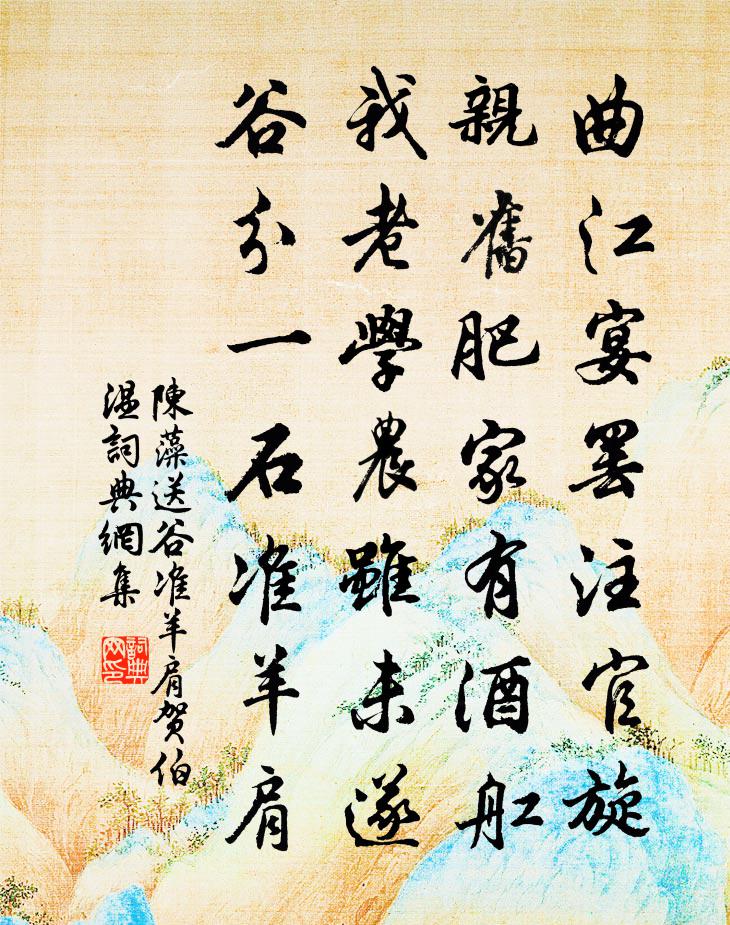 曲江宴罢注官旋
親舊肥家有酒舡
我老學農雖未遂
谷分一石准羊肩
陳藻送谷准羊肩贺伯
温詞典網集
詞典网印